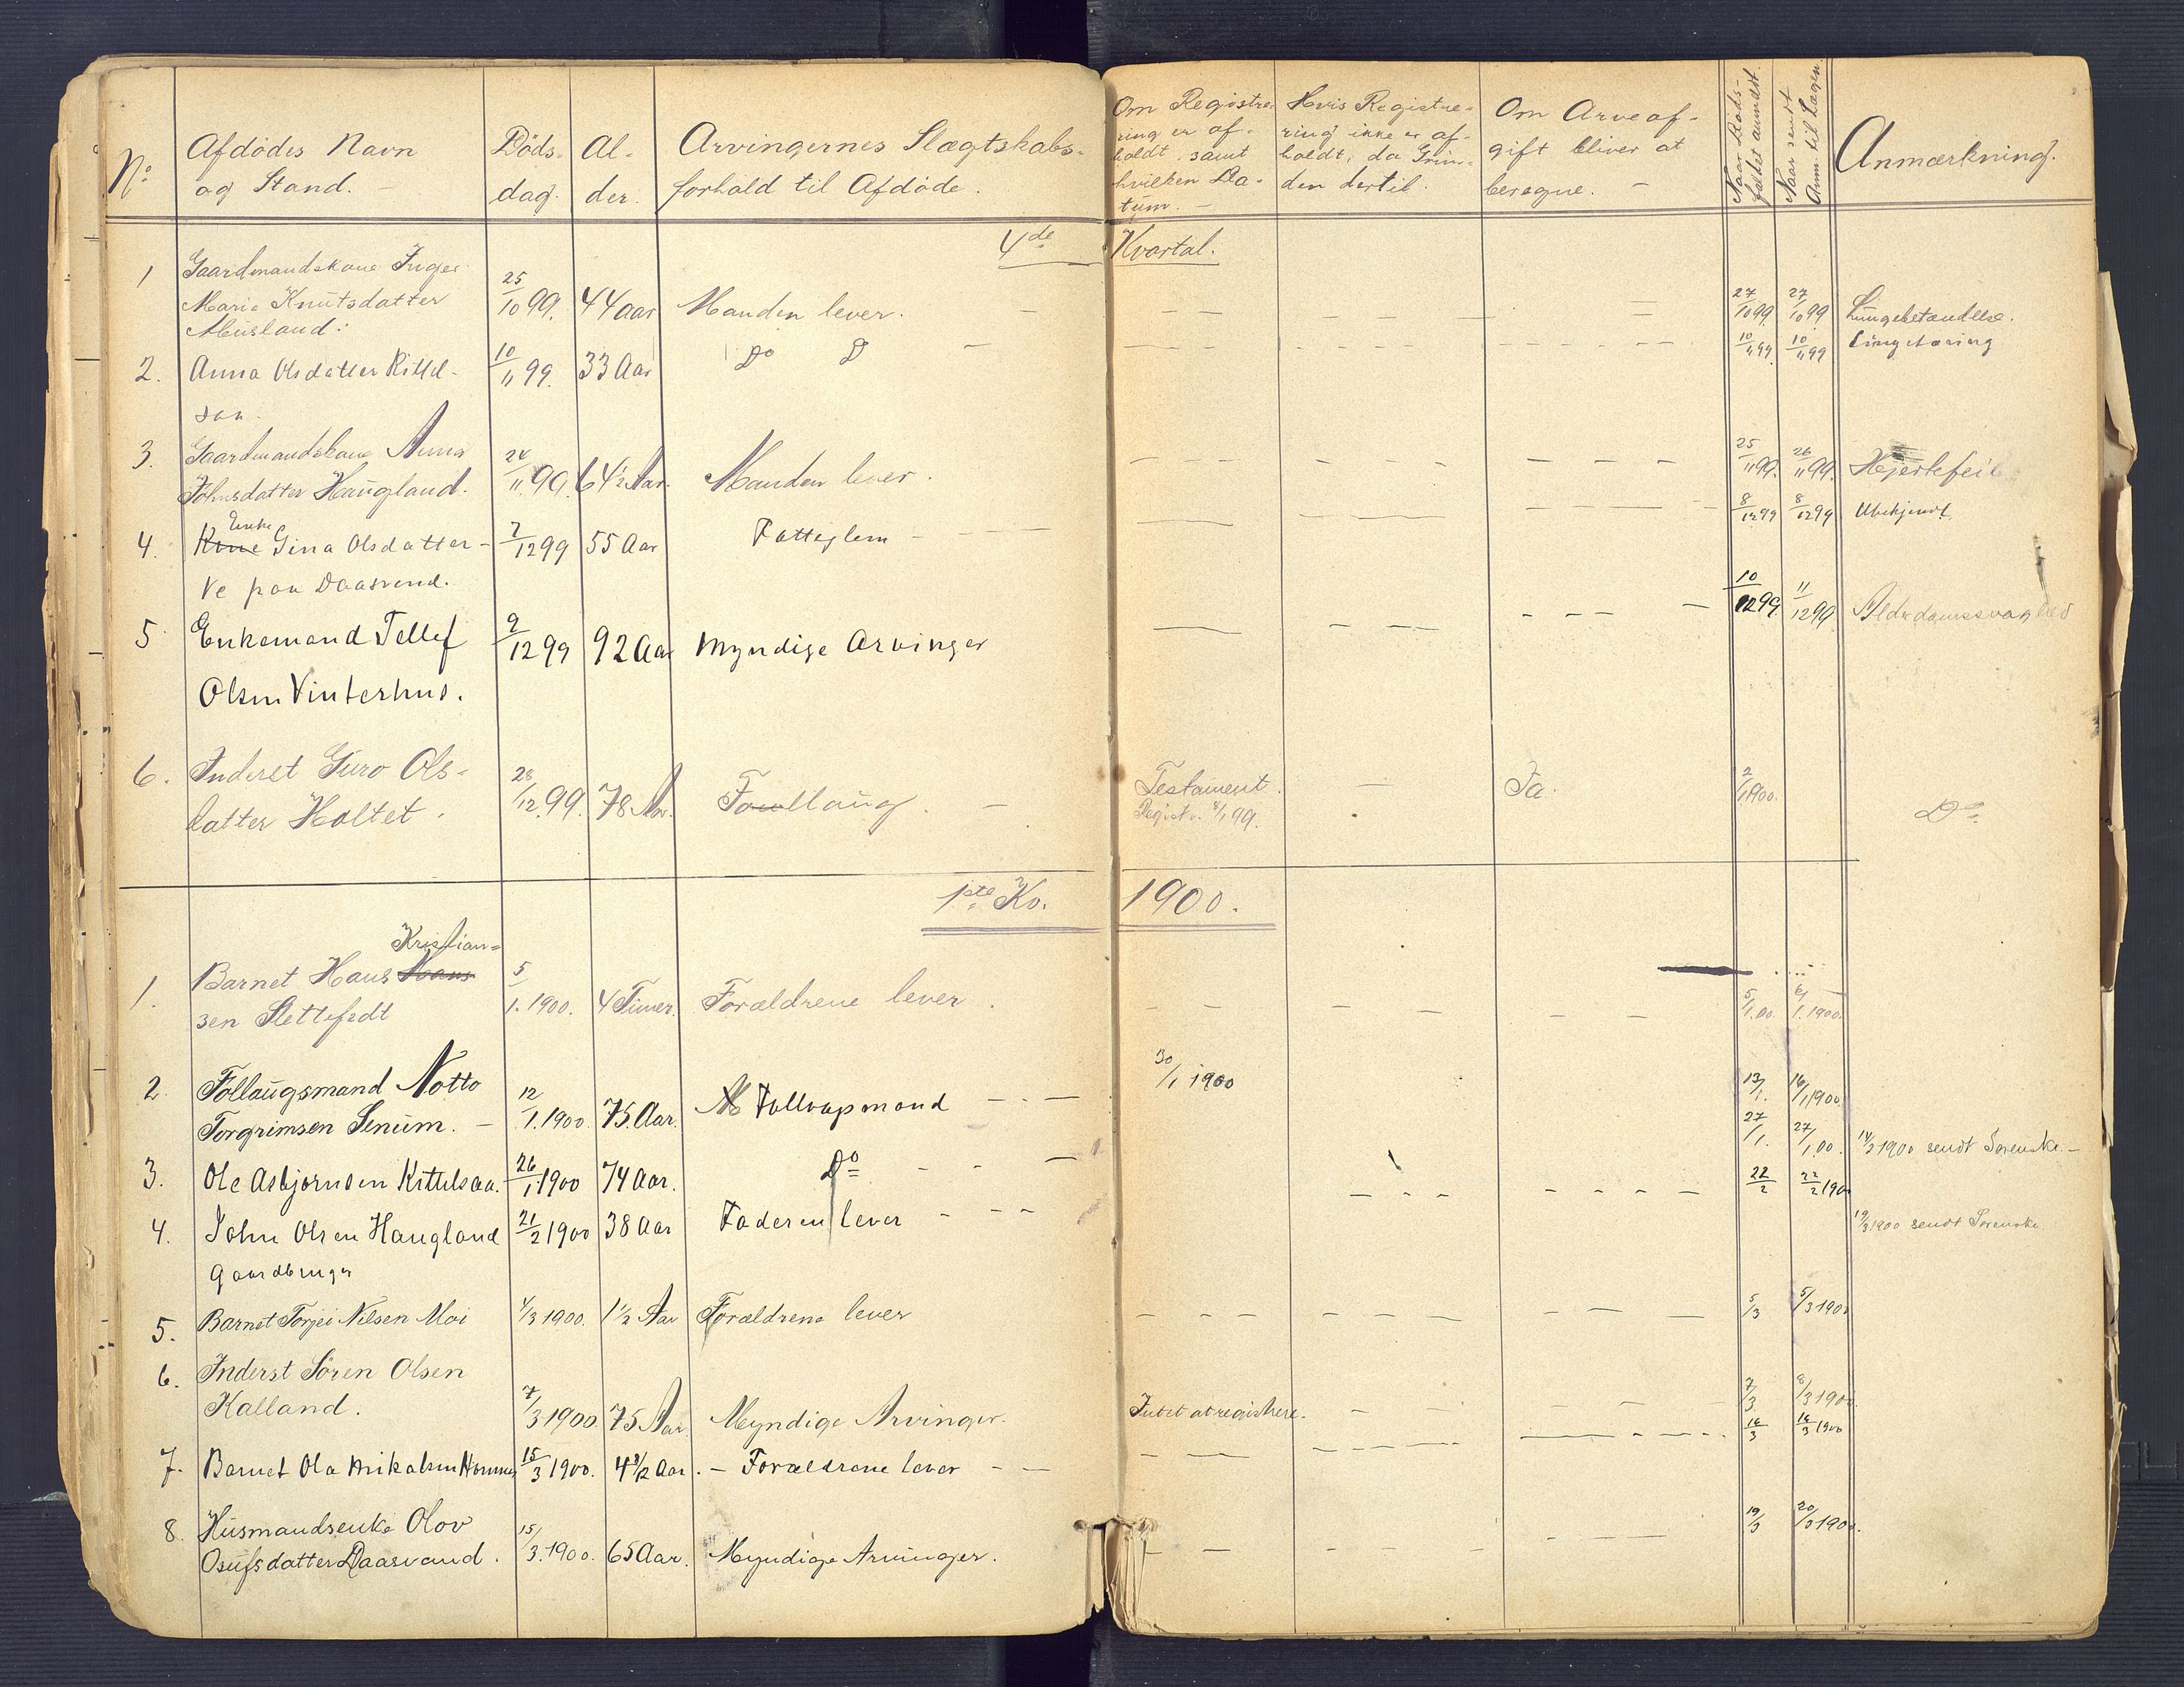 No
Afdødes Navn
og Stand. –
Døds-
dag.
Al-
der.
Arvingernes Slægtskabs-
forhold til Afdøde.
Om Registre-
ring er af-
holdt, samt
hvilken Da-
tum. –
Hvis Registre-
ring ikke er af-
holdt, da Grun-
den dertil.
Om Arveaf-
gift bliver at
beregne. –
Naar Døds-
faldet anmeldt.
Naar sendt
Anm. til Lægen
Anmærkning.
4de Kvartal.
1 Gaardmandskone Inger
Marie Knutsdatter
Musland: 25/10 99. 44 Aar Manden lever. – 27/10 99 27/10 99 Lungebetændelse.
2. Anna Olsdatter Kittel-
saa. 10/11 99. 33 Aar Do D – 10/11 99 10/11 99 Lungetæring
3. Gaardmandskone Anna
Johnsdatter Haugland. 24/11 99. 64½ Aar. Manden lever. 25/11 99. 26/11 99. Hjertefeil
4. Kone Enke Gina Olsdatter –
Ve paa Daasvand. 7/12 99 55 Aar Fattiglem – 8/12 99 8/12 99 Ubekjendt
5 Enkemand Tellef
Olsen Vinterhus. 9/12 99 92 Aar Myndige Arvinger 10/12 99. 11/12 99 Alderdomssvaghed
6. Inderst Guro Ols-
datter Holtet. 28/12 99. 78 Aar. Follaug. – Testament. – Ja. 2/1 1900. Do
Registr. 8/1 99.
1ste Kv. 1900.
1. Barnet Hans Hans Kristian-
sen Slettefedt 5/1. 1900. 4 Timer. Forældrene lever. 5/1.00. 6/1. 1900.
2. Follaugsmand Notto
Torgrimsen Senum. – 12/1. 1900. 75. Aar. Follaugsmand – 30/1 1900 13/1. 16/1 1900
3. Ole Asbjørnsen Kittelsaa. 26/1 1900 74 Aar. Do – 27/1. 27/1.00. 14/3 1900 sendt Sorenskr. –
4. John Olsen Haugland
Gaardbruger 21/2 1900 38 Aar Faderen lever – 22/2 22/2 1900
19/3 1900 sendt Sorenskr.
5. Barnet Torjei Nilsen Moi 4/3 1900. 1½ Aar Forældrene lever 5/3 5/3 1900
6. Inderst Søren Olsen
Kalland. 7/3 1900. 75 Aar. Myndige Arvinger. Intet at registrere. 7/3 8/3 1900.
7. Barnet Ola Mikalsen 15/3 1900. Aar. – Forældrene lever – 16/3 16/3 1900
8. Husmandsenke Olov
Osufsdatter Daasvand. 15/3. 1900. 65 Aar. Myndige Arvinger. 19/3 20/3 1900.